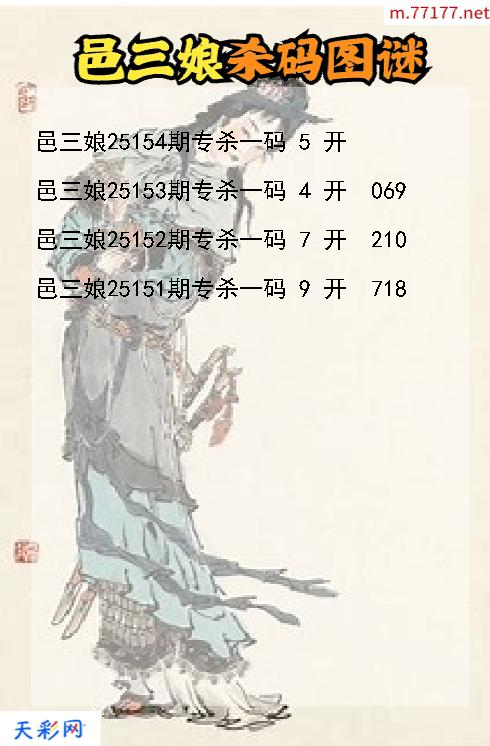 m.77177.net
邑三娘杀码图谜
邑三娘25154期专杀一码 5 开
邑三娘25153期专杀一码 4 开 069
邑三娘25152期专杀一码 7 开 210
邑三娘25151期专杀一码 9 开 718
天彩网